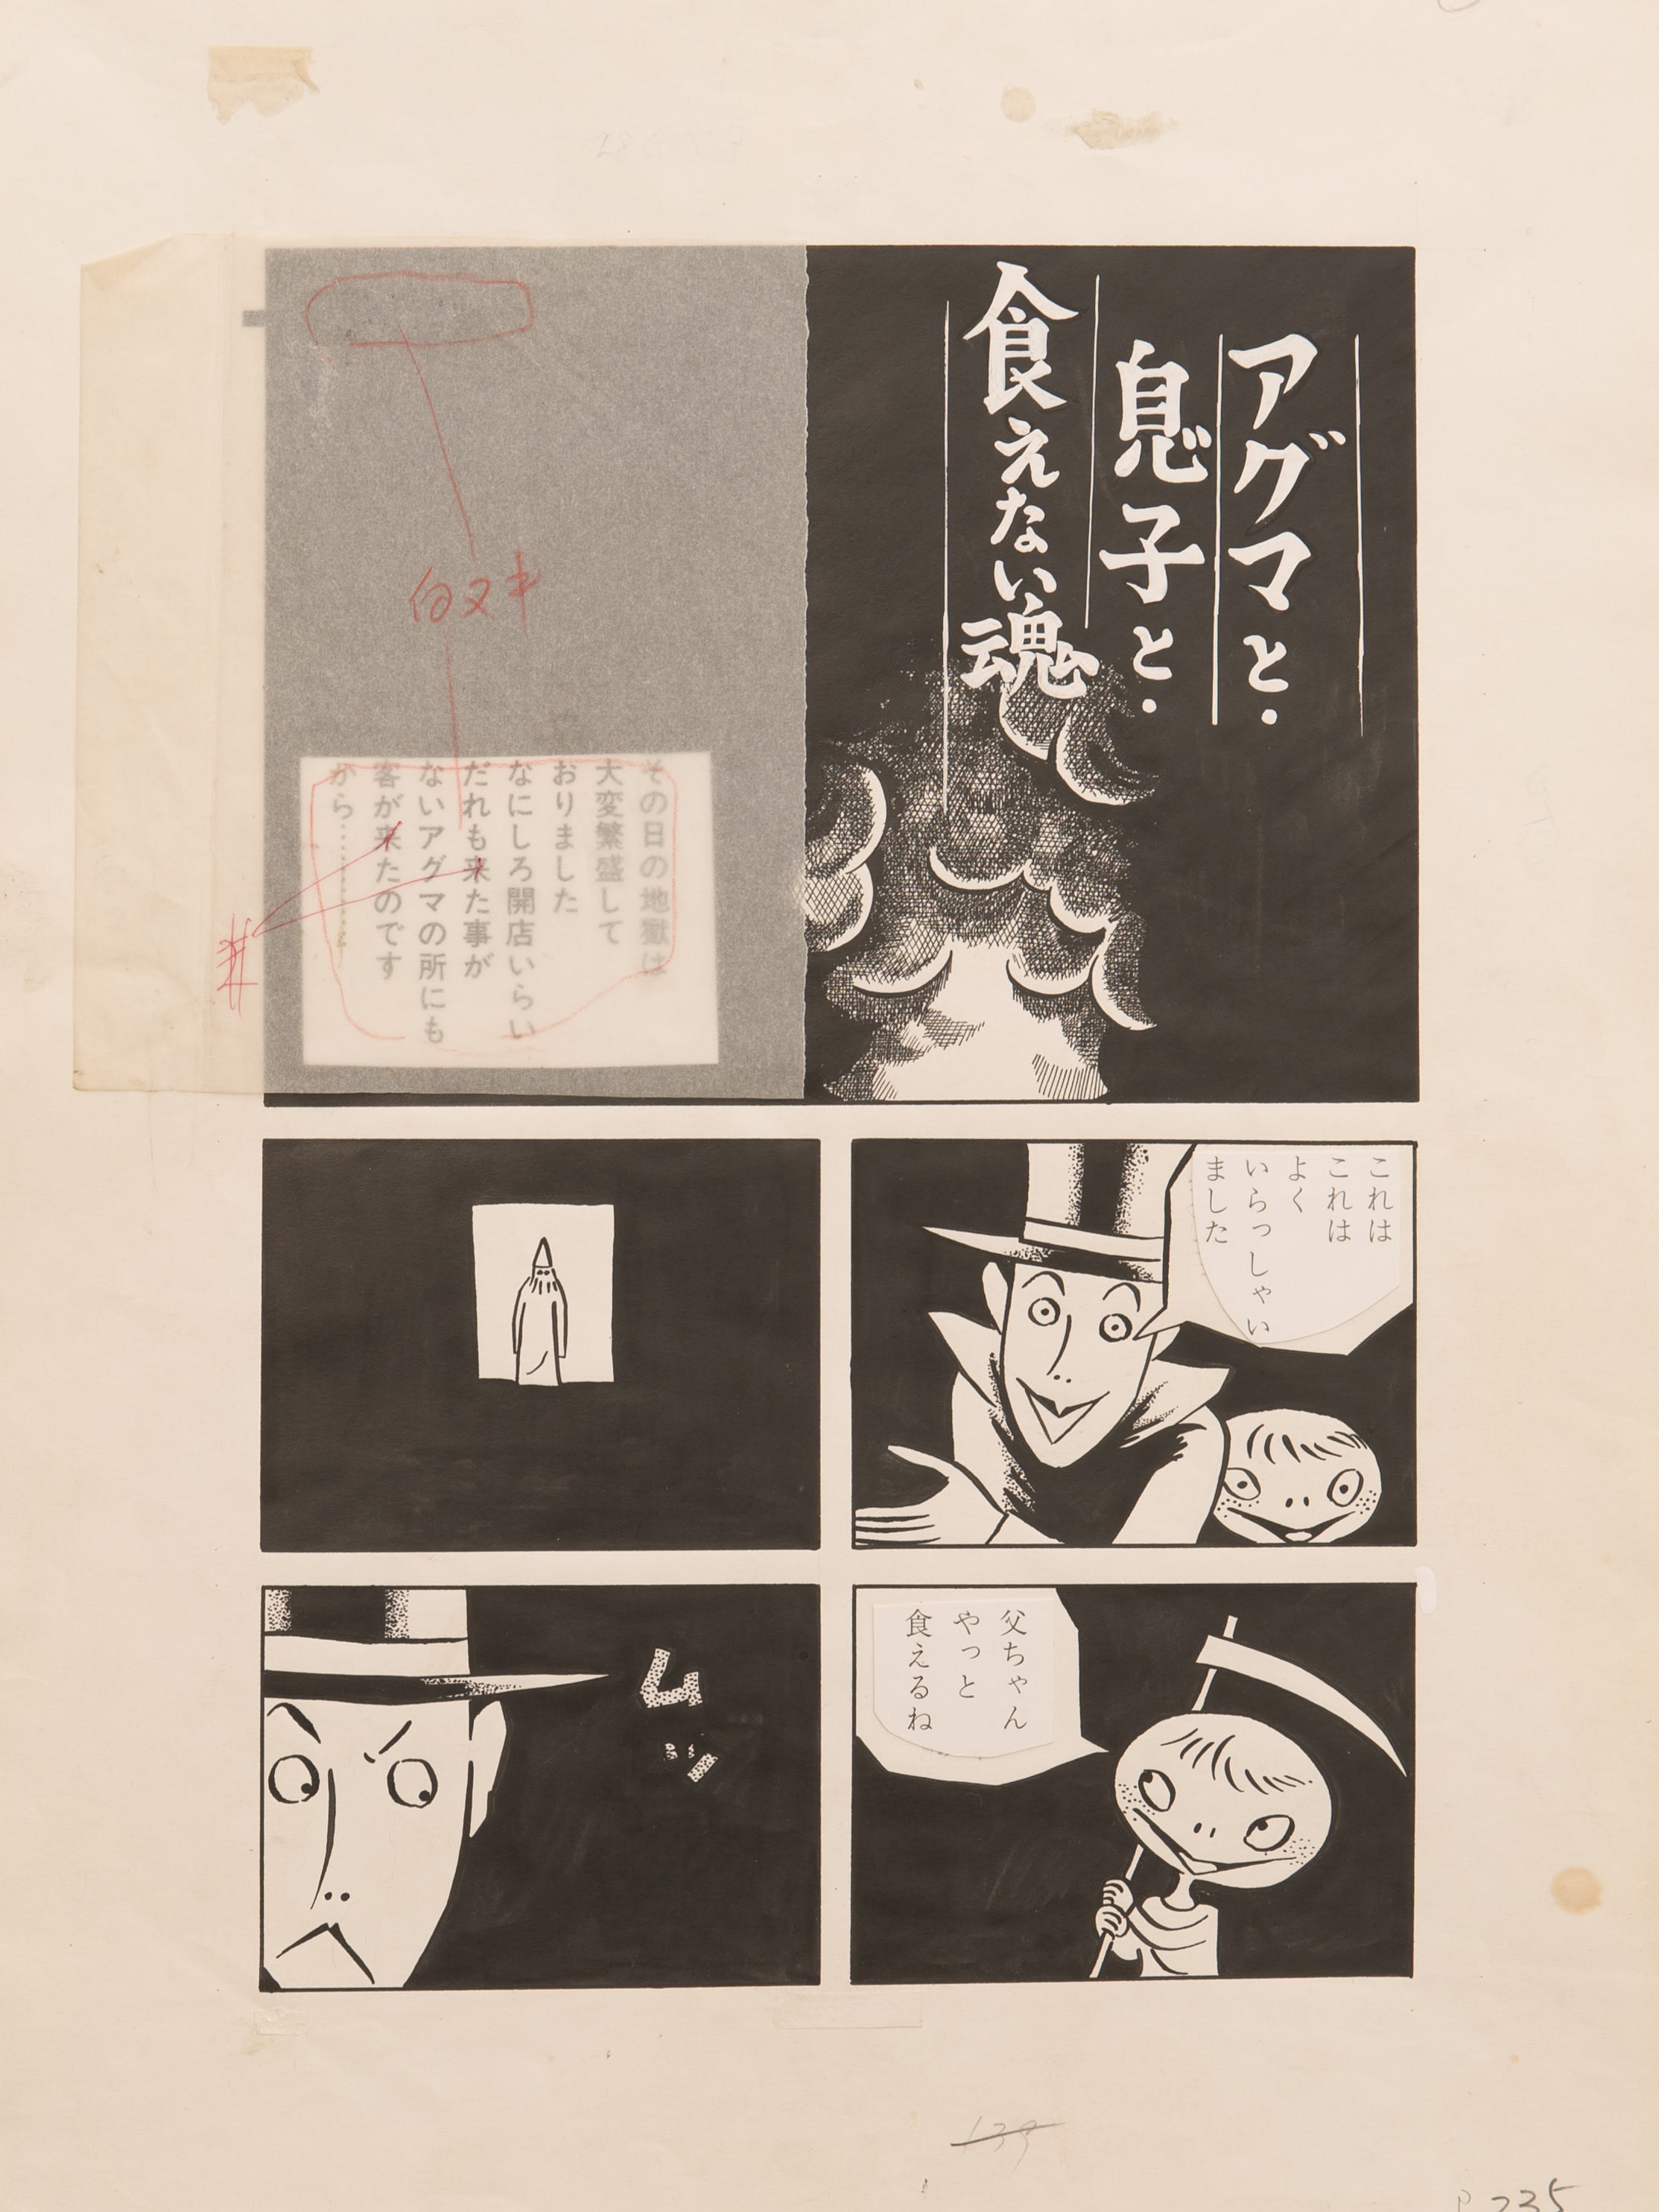 アグマと・
息子と・
食えない魂
白ヌキ
その日の地獄は
大変繁盛して
おりました
なにしろ開店いらい
だれも来た事が
ないアグマの所にも
客が来たのです
から………
これは
これは
よく
いらっしゃい
ました
父ちゃん
やっと
食えるね
ムッ
139
P235